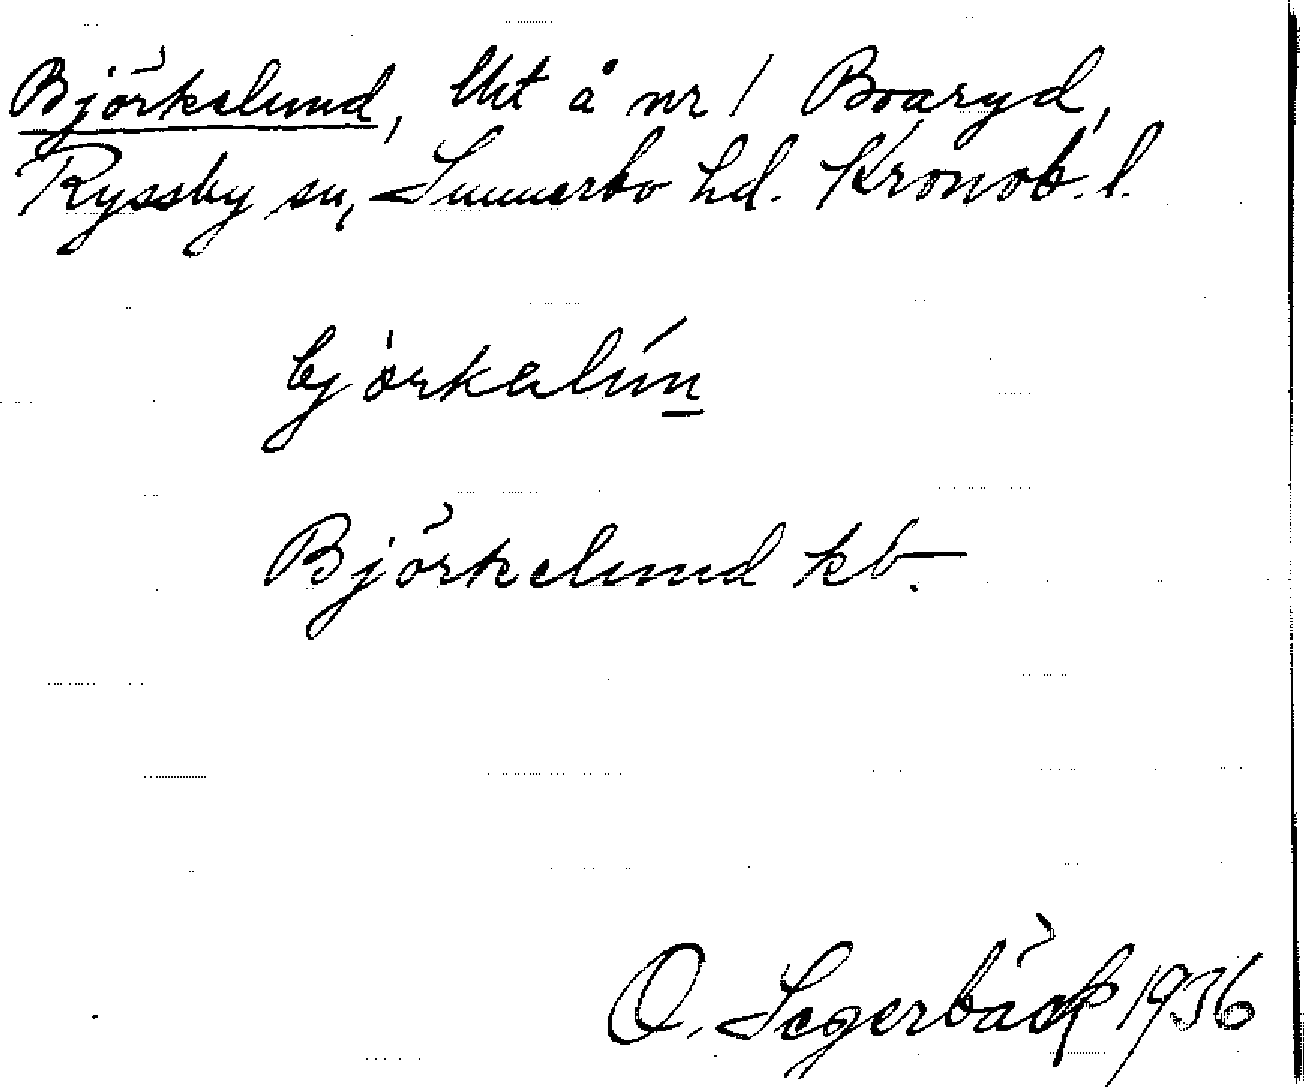 Björkelund, Uht å nr 1 Boaryd,
Ryssby sn, Sunnerbo hd. Kronob. l.
bjòrkalún
Björkelund kb.
O. Segerbäck 1936